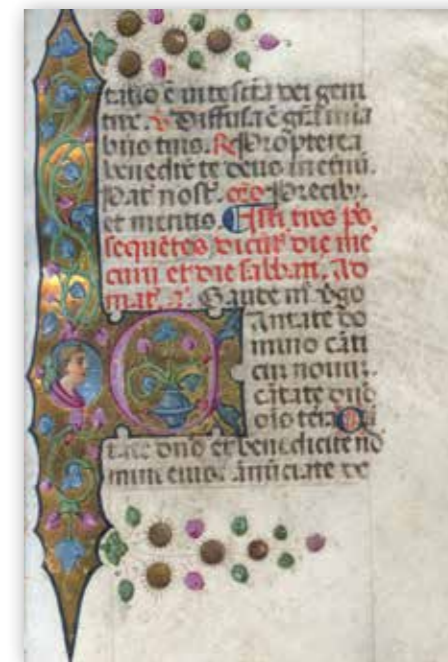 tatio ē in te sctā dei geni
trix. v Diffusa ē grā in la
biis tuis. Re Propterea
benedix̄ te deus in eternū.
Pat̄ nost̄. oro Precibꝰ.
et meritis. Isti tres ps̄
sequētes dicūt̄ die mer
curii et die sabbati. Ad
mat̄. an̄. Gaude m̄ v̄go
Cantate do
mino cāti
cū novū.
cātate dn̄o
oīs terra Cā
tate dn̄o et benedicite no
mini eius. annūciate de